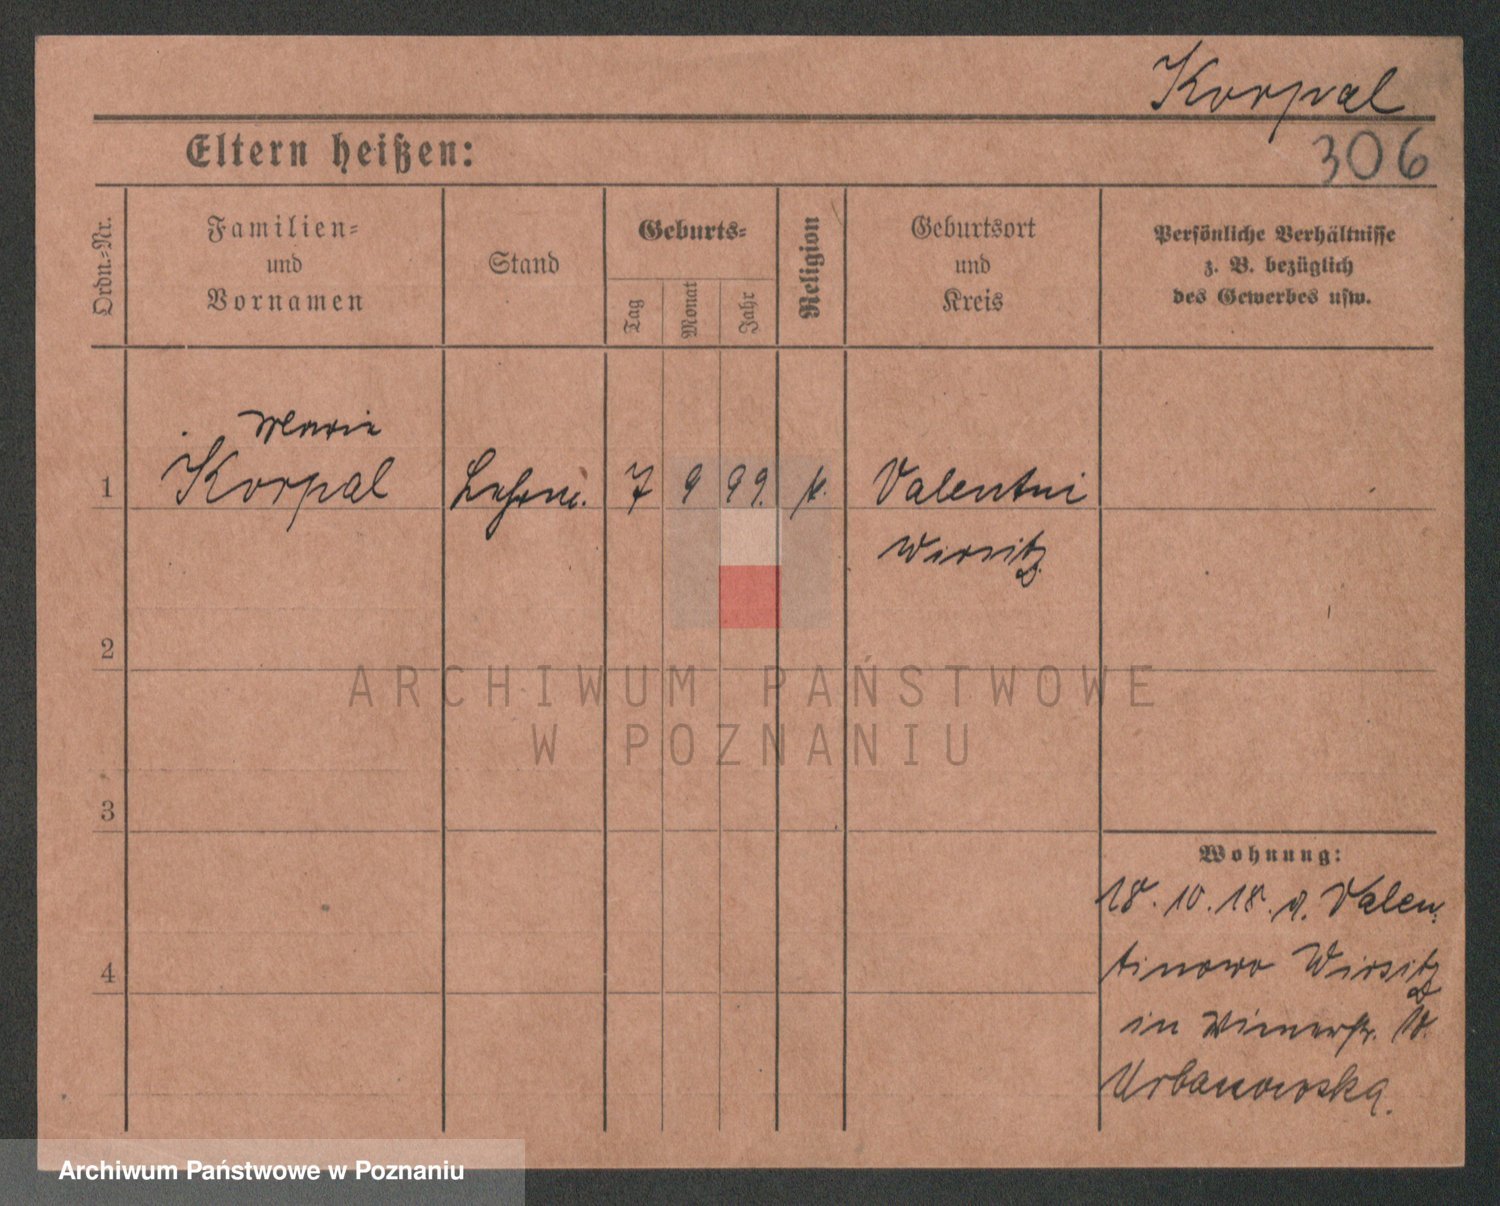 Korpal
306
Eltern heißen:
Ordn.-Nr.
Familien-
und
Vornamen
Stand
Geburts-
Tag
Monat
Jahr
Religion
Geburtsort
und
Kreis
Persönliche Verhältnisse
z. B. bezüglich
des Gewerbes usw.
Marie
1 Korpal 7 9 99. k. Valentni
Wirsitz
2
ARCHIWUM PAŃSTWOWE
W POZNANIU
3
Wohnung:
18. 10. 18. v. Valen-
4
tinowo Wirsitz
in 18.
Urbanowska.
Archiwum Państwowe w Poznaniu